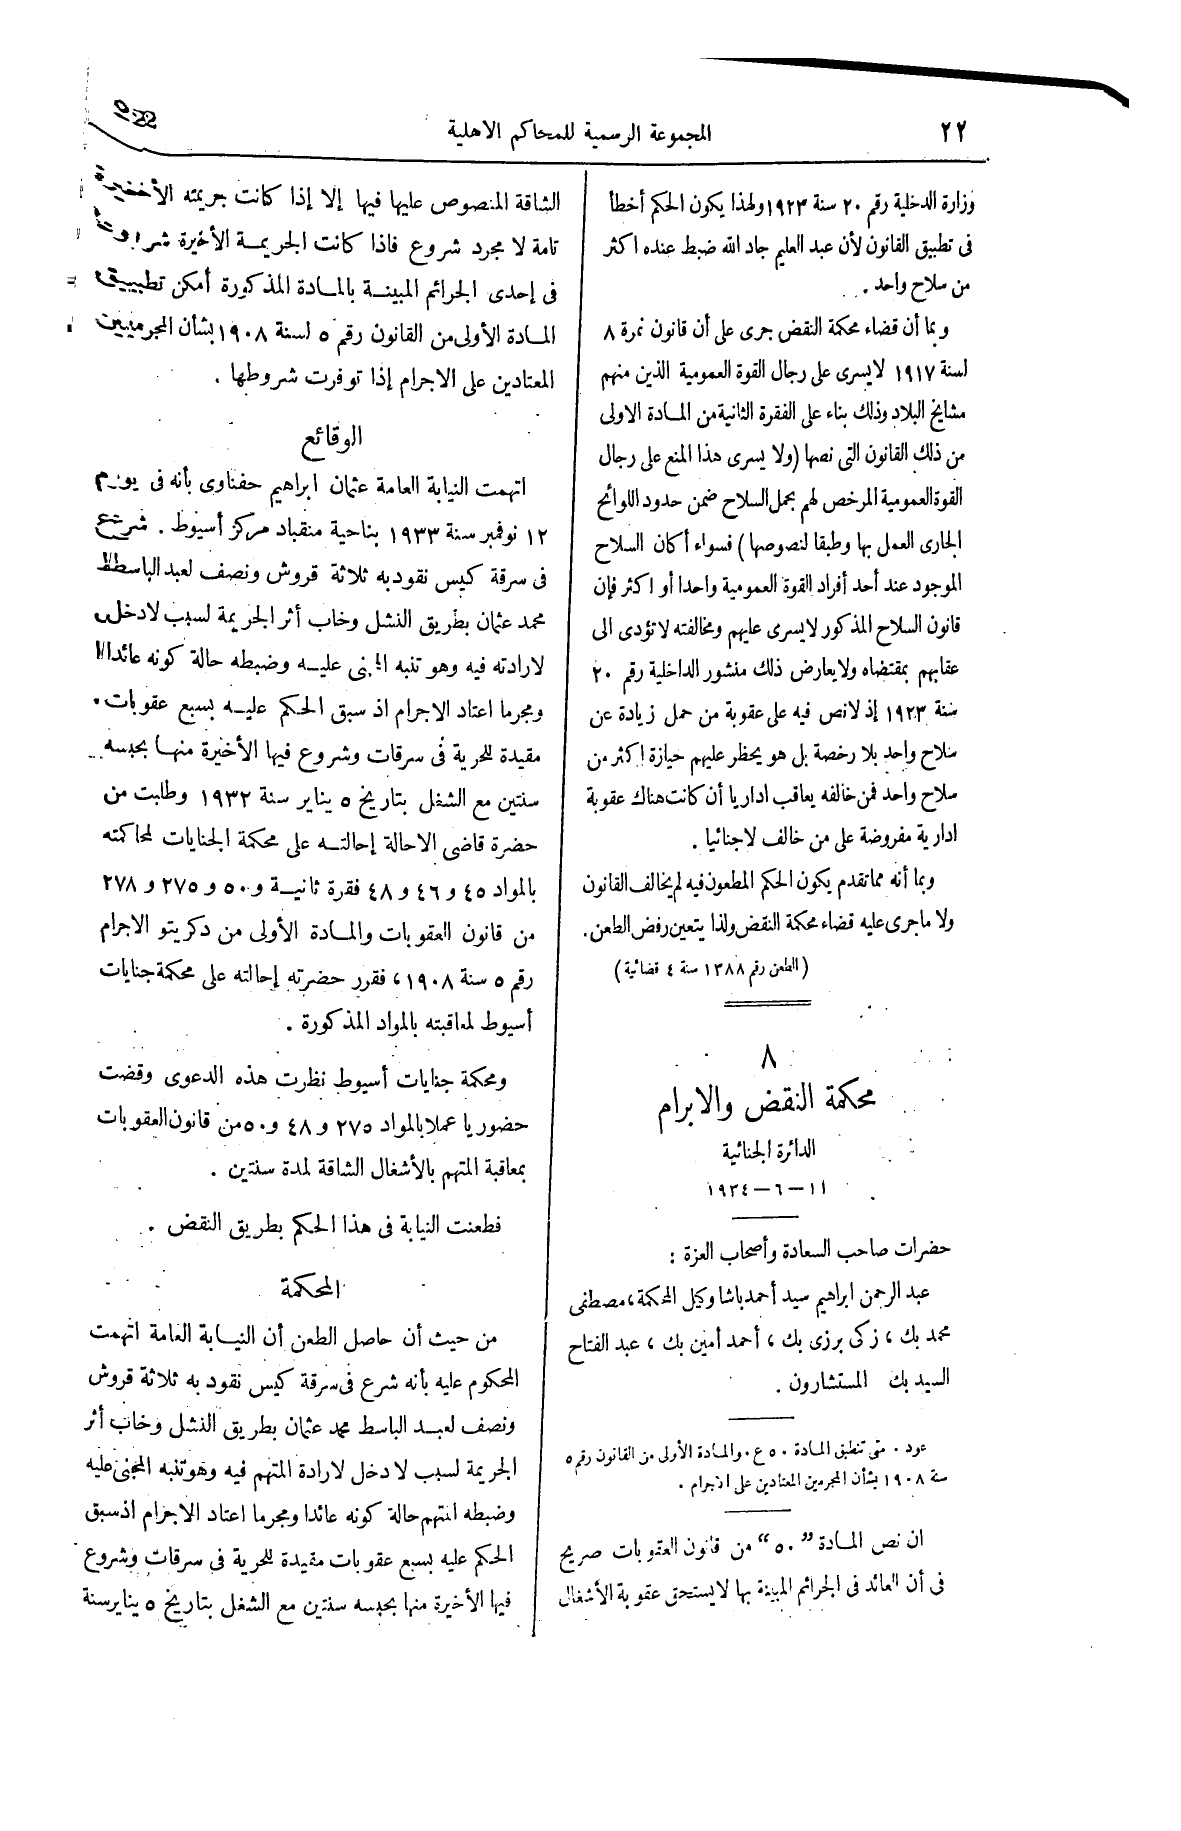 ٢٢
المجموعة الرسمية للمحاكم الاهلية
وزارة الدخلية رقم ٢٠ سنة ١٩٢٣ ولهذا يكون الحكم أخطأ
فى تطبيق القانون لأن عبد العليم جاد الله ضبط عنده اكثر
من سلاح واحد .
وبما أن قضاء محكمة النقض جرى على أن قانون نمرة ٨
لسنة ١٩١٧ لا يسرى على رجال القوة العمومية الذين منهم
مشايخ البلاد وذلك بناء على الفقرة الثانية من المادة الاولى
من ذلك القانون التى نصها (ولا يسرى هذا المنع على رجال
القوة العمومية المرخص لهم بحمل السلاح ضمن حدود اللوائح
الجارى العمل بها وطبقا لنصوصها) فسواء أكان السلاح
الموجود عند أحد أفراد القوة العمومية واحدا أو اكثر فإن
قانون السلاح المذكور لا يسرى عليهم ومخالفته لا تؤدى الى
عقابهم بمقتضاه ولا يعارض ذلك منشور الداخلية رقم ٢٠
سنة ١٩٢٣ إذ لا نص فيه على عقوبة من حمل زيادة عن
سلاح واحد بلا رخصة بل هو يحظر عليهم حيازة اكثر من
سلاح واحد فمن خالفه يعاقب اداريا أن كانت هناك عقوبة
ادارية مفروضة على من خالف لا جنائيا .
وبما أنه مما تقدم يكون الحكم المطعون فيه لم يخالف القانون
ولا ما جرى عليه قضاء محكمة النقض ولذا يتعين رفض الطعن .
(الطعن رقم ١٣٨٨ سنة ٤ قضائية)
٨
محكمة النقض والابرام
الدائرة الجنائية
١١ – ٦ – ١٩٣٤
حضرات صاحب السعادة وأصحاب العزة :
عبد الرحمن ابراهيم سيد أحمد باشا وكيل المحكمة، مصطفى
محمد بك ، زكى برزى بك ، أحمد أمين بك ، عبد الفتاح
السيد بك المستشارون .
عود . متى تنطبق المادة ٥٠ ع . والمادة الأولى من القانون رقم ٥
سنة ١٩٠٨ بشأن المجرمين المعتادين على الاجرام .
ان نص المادة ”٥٠“ من قانون العقوبات صريح
فى أن العائد فى الجرائم المبينة بها لا يستحق عقوبة الأشغال
الشاقة المنصوص عليها فيها إلا إذا كانت جريمته الأخيرة
تامة لا مجرد شروع فاذا كانت الجريمة الأخيرة شروعا
فى إحدى الجرائم المبينة بالمادة المذكورة أمكن تطبيق
المادة الأولى من القانون رقم ٥ لسنة ١٩٠٨ بشأن المجرمين
المعتادين على الاجرام إذا توفرت شروطها .
الوقائع
اتهمت النيابة العامة عثمان ابراهيم حفناوى بأنه فى يوم
١٢ نوفمبر سنة ١٩٣٣ بناحية منقباد مركز أسيوط . شرع
فى سرقة كيس نقود به ثلاثة قروش ونصف لعبد الباسط
محمد عثمان بطريق النشل وخاب أثر الجريمة لسبب لا دخل
لارادته فيه وهو تنبه المجنى عليه وضبطه حالة كونه عائدا
ومجرما اعتاد الاجرام اذ سبق الحكم عليه بسبع عقوبات
مقيدة للحرية فى سرقات وشروع فيها الأخيرة منها بحبسه
سنتين مع الشغل بتاريخ ٥ يناير سنة ١٩٣٢ وطلبت من
حضرة قاضى الاحالة إحالته على محكمة الجنايات لمحاكمته
بالمواد ٤٥ و ٤٦ و ٤٨ فقرة ثانية و ٥٠ و ٢٧٥ و ٢٧٨
من قانون العقوبات والمادة الأولى من دكريتو الاجرام
رقم ٥ سنة ١٩٠٨ ، فقرر حضرته إحالته على محكمة جنايات
أسيوط لمعاقبته بالمواد المذكورة .
ومحكمة جنايات أسيوط نظرت هذه الدعوى وقضت
حضوريا عملا بالمواد ٢٧٥ و ٤٨ و ٥٠ من قانون العقوبات
بمعاقبة المتهم بالأشغال الشاقة لمدة سنتين .
فطعنت النيابة فى هذا الحكم بطريق النقض .
المحكمة
من حيث أن حاصل الطعن أن النيابة العامة اتهمت
المحكوم عليه بأنه شرع فى سرقة كيس نقود به ثلاثة قروش
ونصف لعبد الباسط محمد عثمان بطريق النشل وخاب أثر
الجريمة لسبب لا دخل لارادة المتهم فيه وهو تنبه المجنى عليه
وضبطه المتهم حالة كونه عائدا ومجرما اعتاد الاجرام اذ سبق
الحكم عليه بسبع عقوبات مقيدة للحرية فى سرقات وشروع
فيها الأخيرة منها بحبسه سنتين مع الشغل بتاريخ ٥ يناير سنة